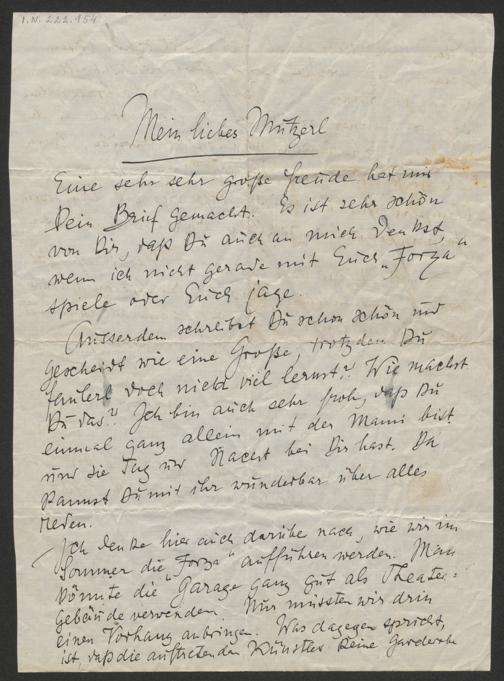 I.N. 222.154
Mein liebes Mutzerl
Eine sehr sehr große Freude hat mir
Dein Brief gemacht. Es ist sehr schön
von Dir, daß Du auch an mich denkst,
wenn ich nicht gerade mit Euch „Forza“
spiele oder Euch jage.
Ausserdem schreibst Du schon schön und
gescheidt wie eine Große, trotzdem Du
doch nicht viel lernst? Wie machst
Du das? Ich bin auch sehr froh, daß Du
einmal ganz allein mit der Mami bist
und sie Tag und Nacht bei Dir hast. Da
kannst Du mit ihr wunderbar über alles
reden.
Ich denke hier auch darüber nach, wie wir im
Sommer die „Forza“ aufführen werden. Man
könnte die Garage ganz gut als Theater=
gebäude verwenden. Nur müssten wir drin
einen Vorhang anbringen. Was dagegen spricht,
ist, daß die auftretenden Künstler keine Garderobe